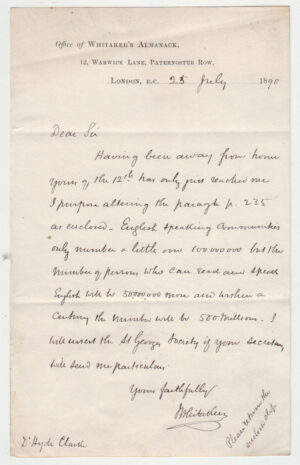 Office of Whitaker's Almanack,
12, Warwick Lane, Paternoster Row,
London, E.C. 25 July 1890
Dear Sir
Having been away from home
yours of the 12th has only just reached me
I purpose altering the paragh p. 235
as enclosed – English speaking Communities
only number a little over 100000000 but the
number of persons who can read and speak
English will be 50,000000 more and within a
Century the number will be 500 Millions – I
will insert the St Georges Society if your secretary
will send me particulars
Yours faithfully
JWhitaker
Dr Hyde Clarke
Please return the
enclosed slip